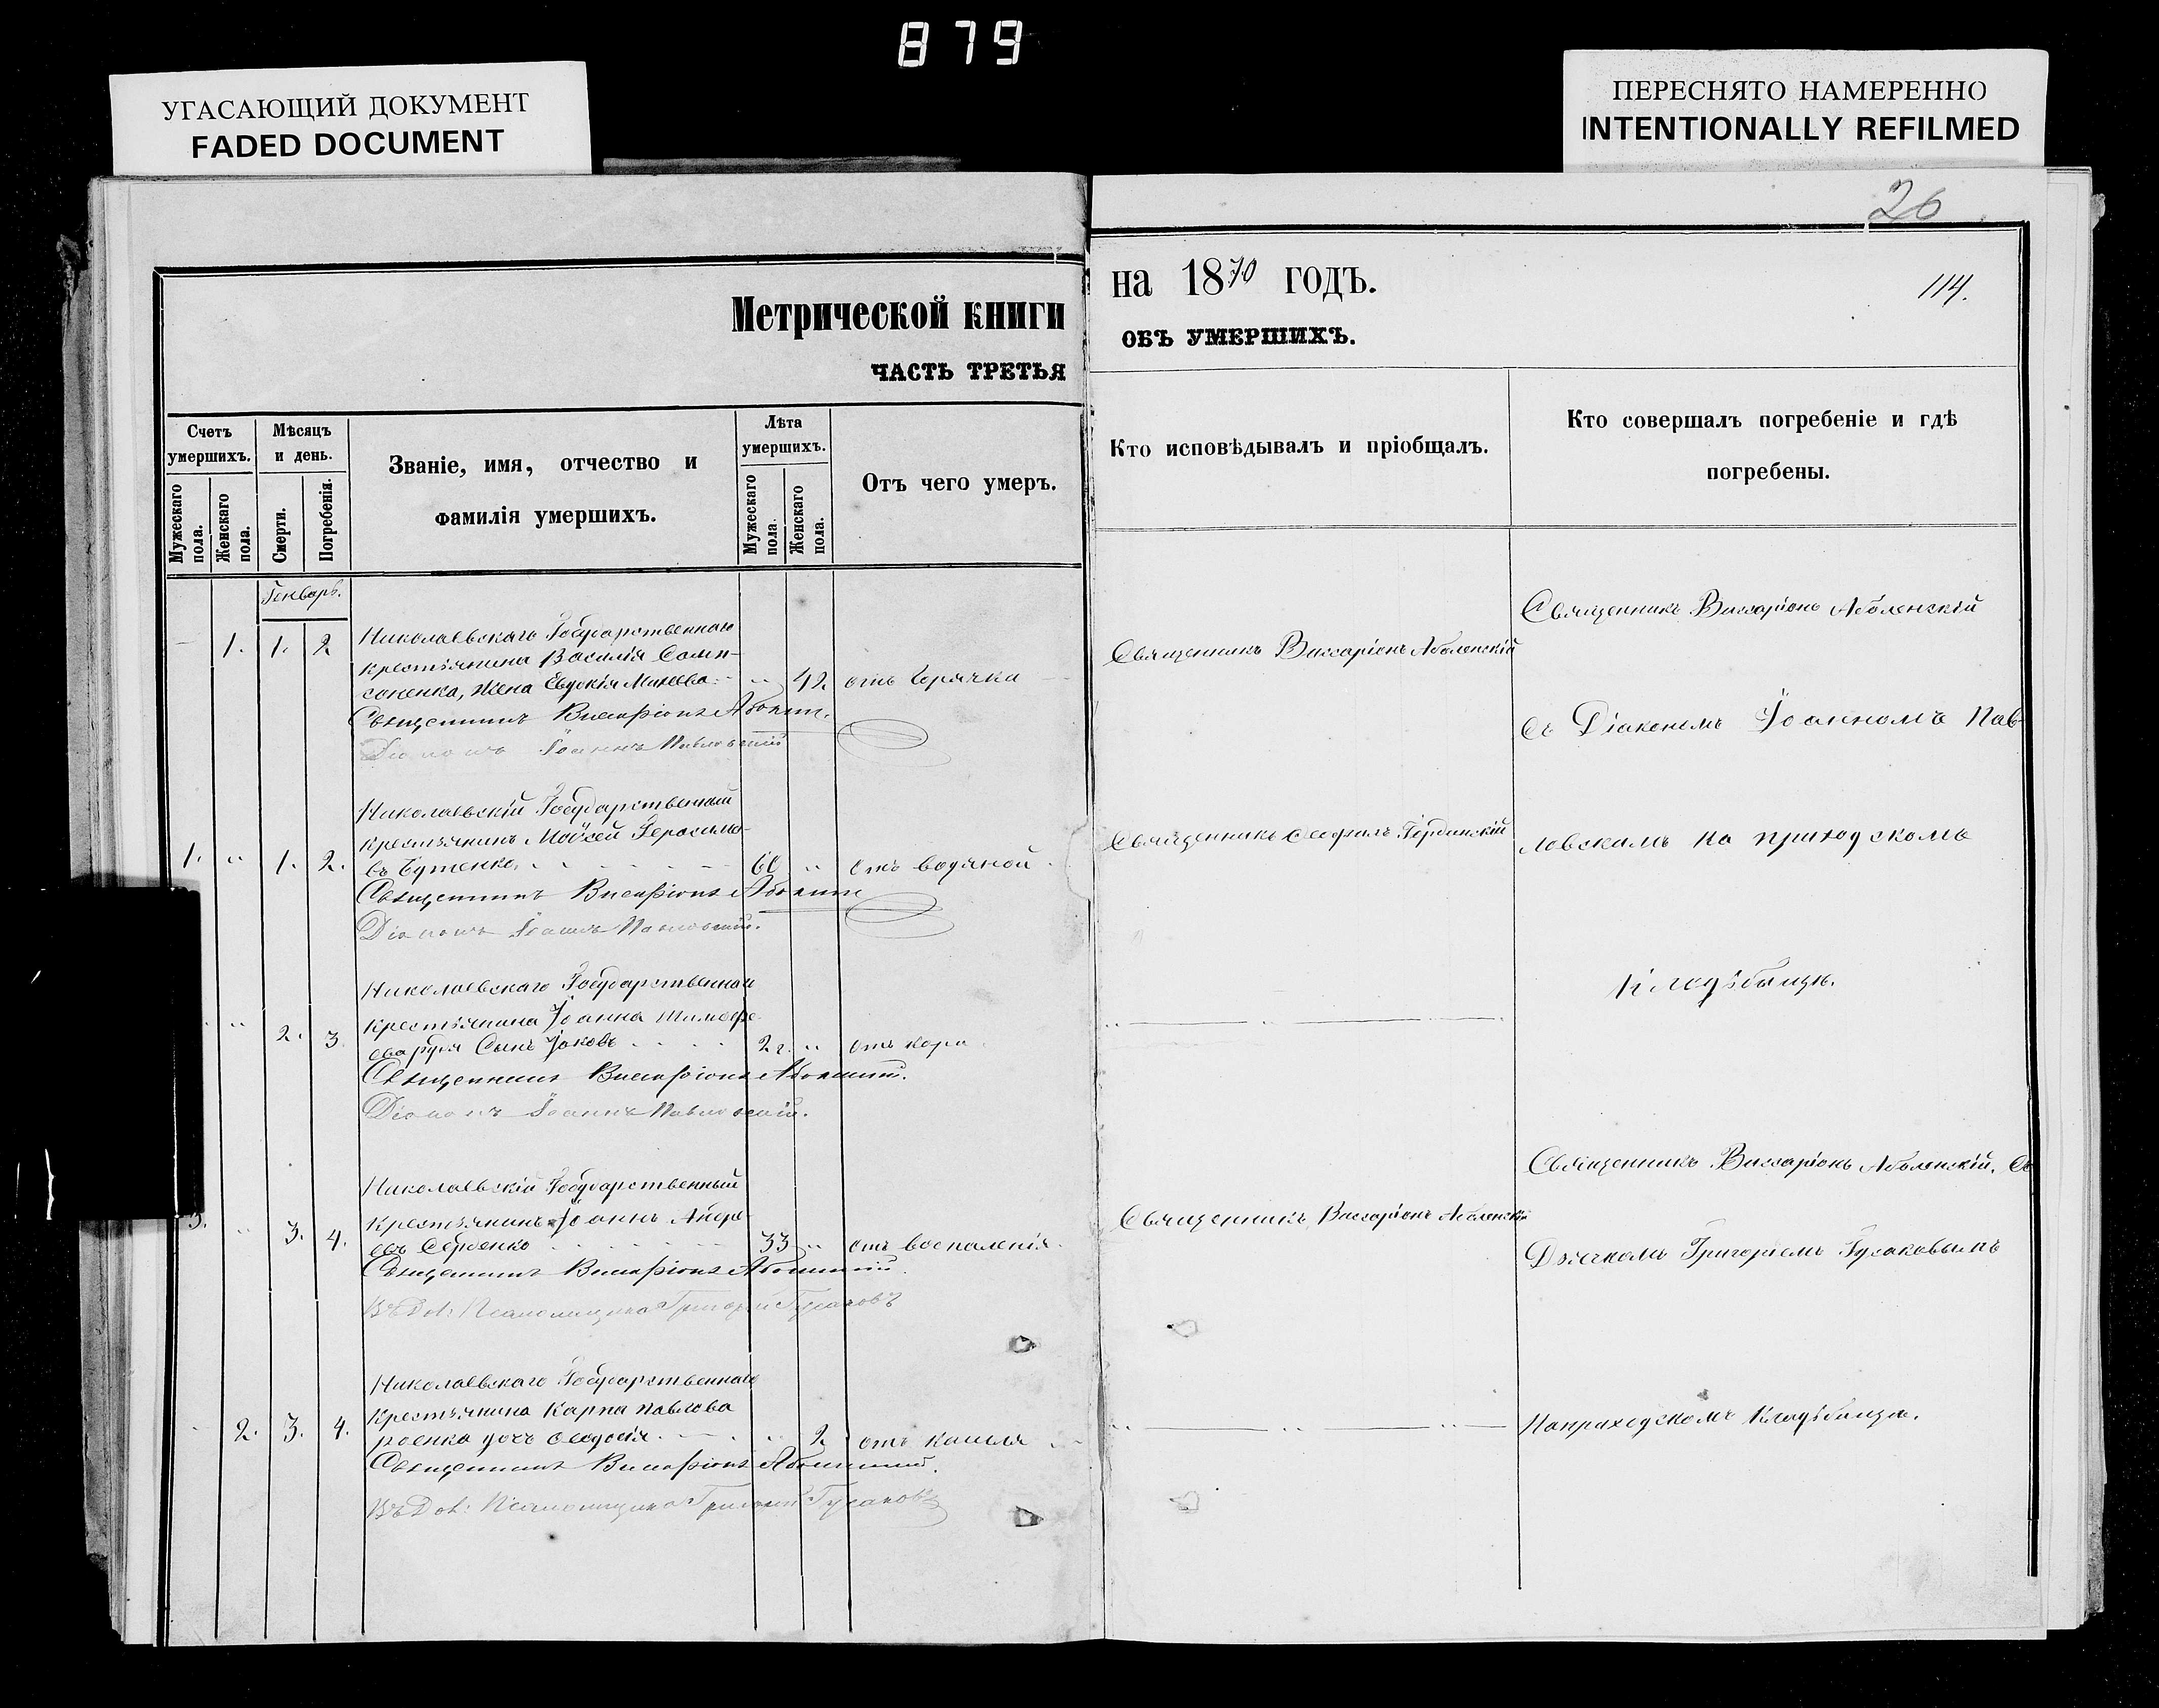 879
УГАСАЮЩИЙ ДОКУМЕНТ
FADED DOCUMENT
ПЕРЕСНЯТО НАМЕРЕННО
INTENTIONALLY REFILMED
26
Метрической книги
часть третья
на 1870 годъ.
объ умершихъ.
114.
Счетъ умершихъ.
Мужескаго пола.
Женскаго пола.
Мѣсяцъ и день.
Смерти.
Погребенія.
Званіе, имя, отчество и
фамилія умершихъ.
Лѣта умершихъ.
Мужескаго пола.
Женскаго пола.
Отъ чего умеръ.
Кто исповѣдывалъ и пріобщалъ.
Кто совершалъ погребеніе и гдѣ
погребены.
Генварь.
1. 1. 2
Николаевскаго Государственнаго
крестьянина Василія
жена Евдокія 42 отъ горячки
Священникъ Виссаріонъ
Діаконъ Іоаннъ Павловскій
Священникъ Виссаріонъ Аболенскій
Священникъ Виссаріонъ Аболенскій
съ Діакономъ Іоанномъ Пав-
ловскимъ на приходскомъ
кладбищѣ.
Николаевскій Государственный
крестьянинъ Моисей Герасимо-
1. " 1. 2. въ 60 " отъ водяной
Священникъ Виссаріонъ
Діаконъ Іоаннъ Павловскій.
Священникъ
Николаевскаго Государственнаго
крестьянина Іоанна Тимофе-
" 2. 3. Сынъ Іаковъ 2 г. " отъ кори
Священникъ Виссаріонъ
Діаконъ Іоаннъ Павловскій.
Николаевскій Государственный
крестьянинъ Іоаннъ Андре-
3. " 3. 4. евъ 33 " отъ воспаленія
Священникъ Виссаріонъ
Григорій Гусаковъ
Священникъ Виссаріонъ Аболенскій
Священникъ Виссаріонъ Аболенскій, съ
Дьячкомъ Григоріемъ Гусаковымъ
На приходскомъ кладбищѣ.
Николаевскаго Государственнаго
крестьянина Карпа Павлова
2. 3. 4. дочь Феодосія " 2 отъ кашля
Священникъ Виссаріонъ
Григорій Гусаковъ